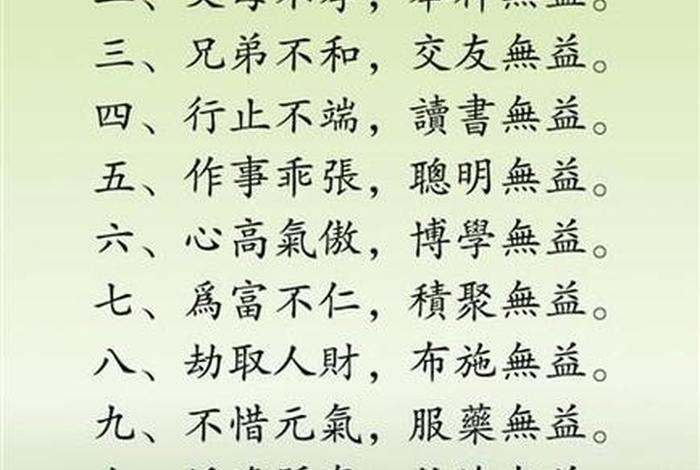 三、兄弟不和，交友無益。
四、行止不端，讀書無益。
五、作事乖張，聰明無益。
六、心高氣傲，博學無益。
七、爲富不仁，積聚無益。
八、劫取人財，布施無益。
九、不惜元氣，服藥無益。